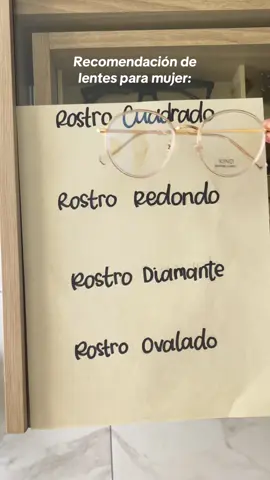 Recomendación de
lentes para mujer:
Rostro Cuadrado
Rostro Redondo
Rostro Diamante
Rostro Ovalado